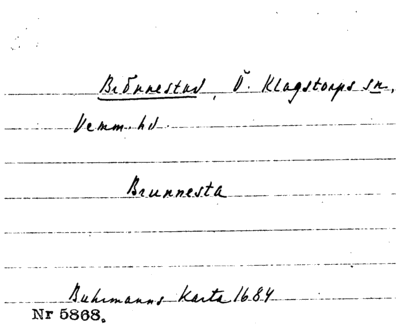 Brönnestad, Ö. Klagstorps sn,
Vemm. hd.
Brunnesta
Buhrmanns Karta 1684
Nr 5868.